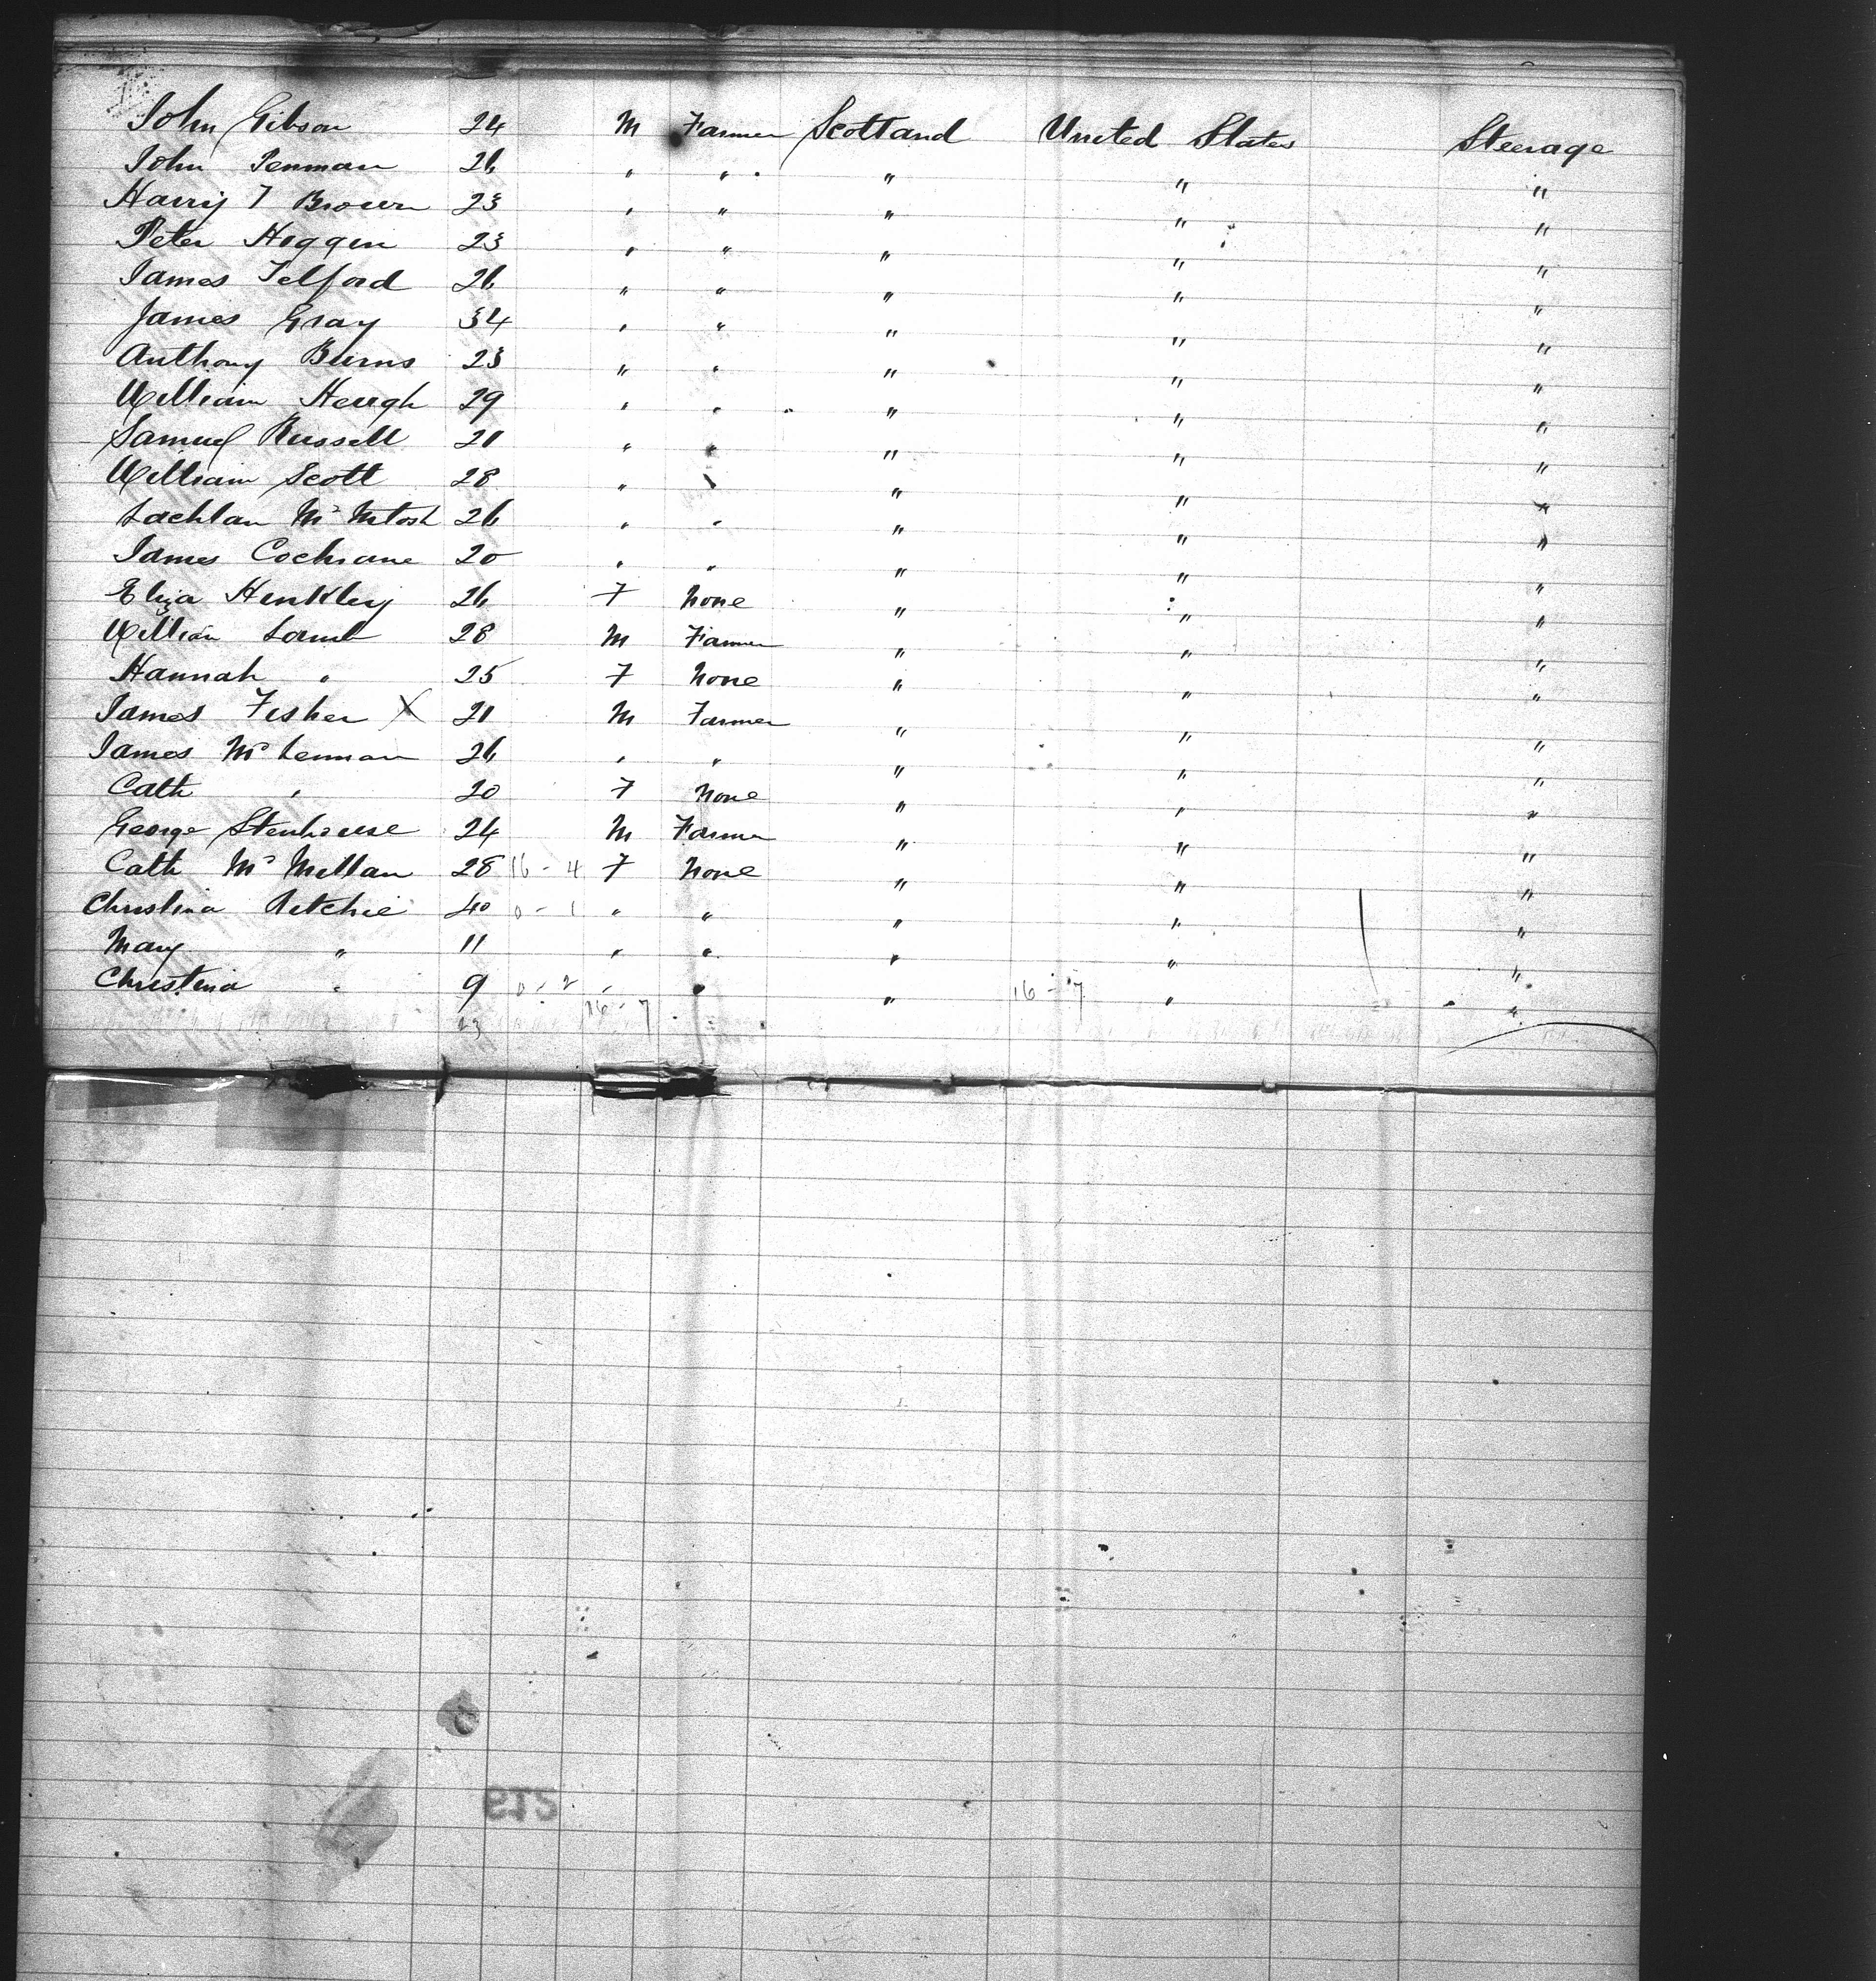 John Gibson 24 M Farmer Scotland United States Steerage
John Penman 26 " " " " "
Harry T Brown 23 " " " " "
Peter Hoggin 23 " " " " "
James Telford 26 " " " " "
James Gray 34 " " " " "
Anthony Burns 23 " " " " "
William Heugh 29 " " " " "
Samuel Russell 21 " " " " "
William Scott 28 " " " " "
Lachlan Mc Intosh 26 " " " " "
James Cochrane 20 " " " " "
Eliza Henkley 26 F None " " "
William Lamb 28 M Farmer " " "
Hannah " 25 F None " " "
James Fisher X 21 M Farmer " " "
James Mc Lennan 26 " " " " "
Cath " 20 F None " " "
George Stenhouse 24 M Farmer " " "
Cath Mc Millan 28 16 - 4 F None " " "
Christina Ritchie 40 0 - 1 " " " " "
Mary " 11 " " " " "
Christina " 9 0 - 2 " " " 16 - 7 " "
23 16 - 7